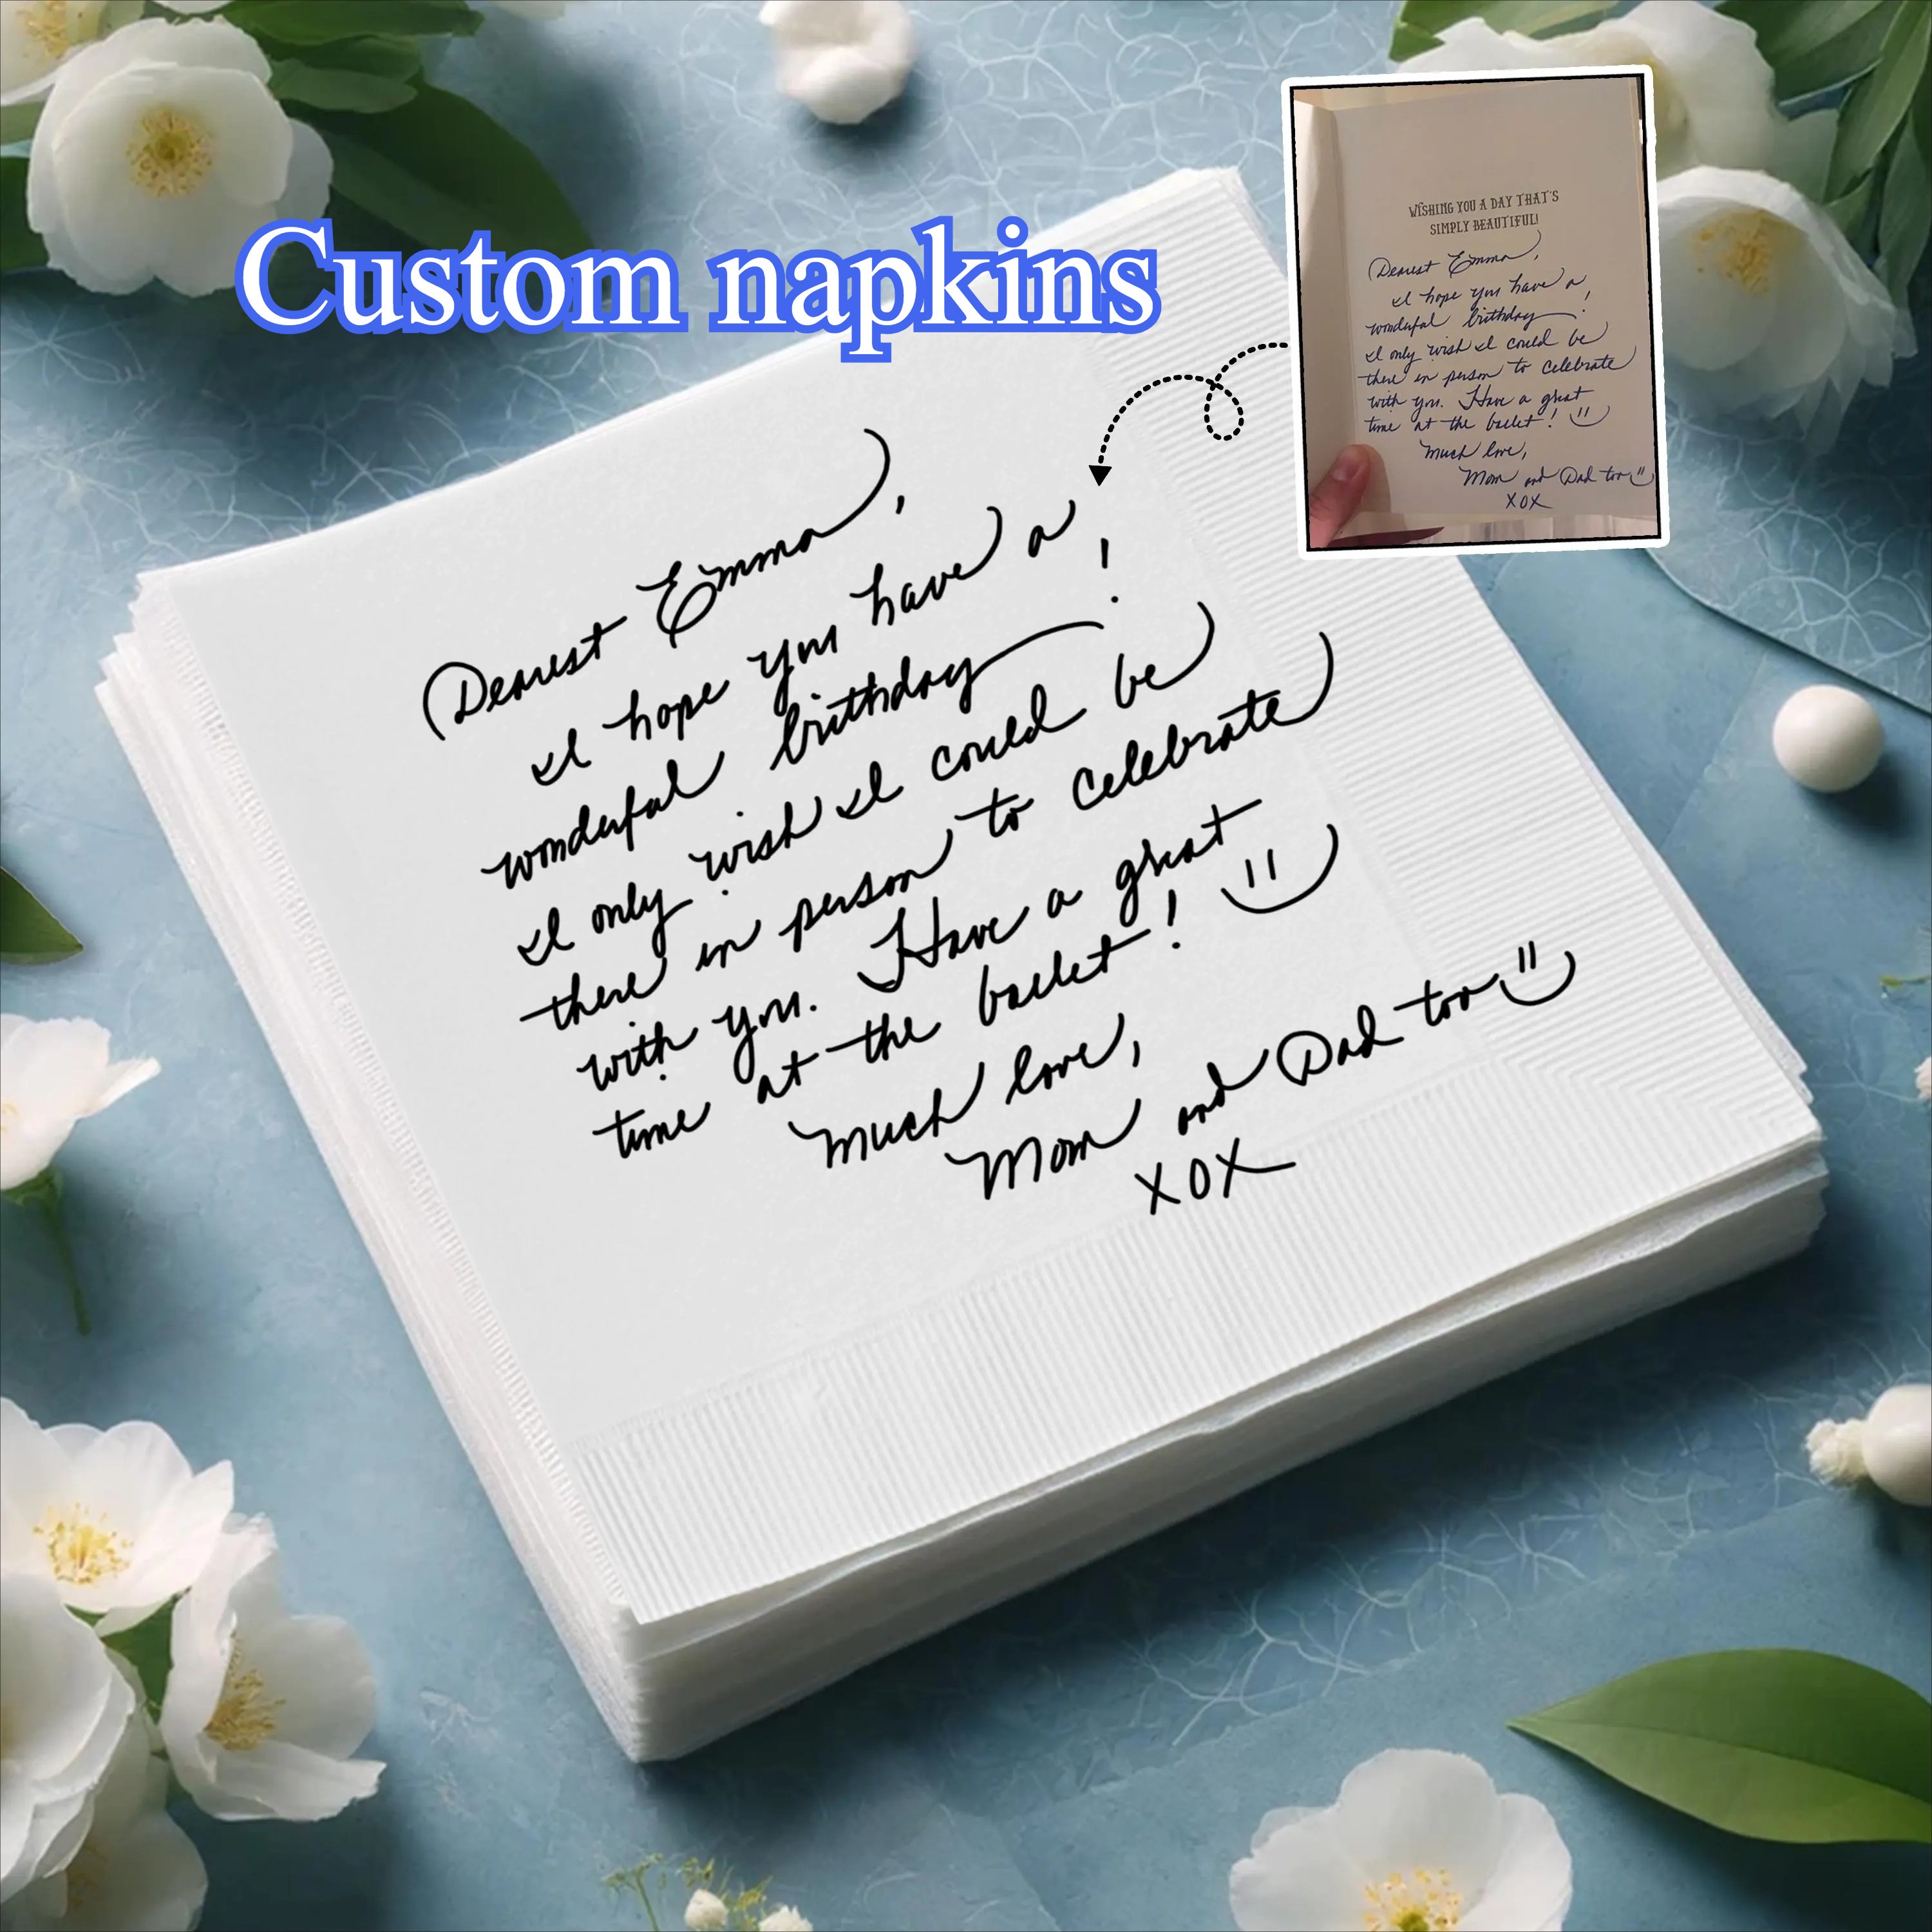 Custom napkins
WISHING YOU A DAY THAT'S
SIMPLY BEAUTIFUL!
Dearest Emma,
I hope you have a
wonderful birthday!
I only wish I could be
there in person to celebrate
with you. Have a great
time at the ballet!
Much love,
Mom and Dad too
XOX
Dearest Emma,
I hope you have a
wonderful birthday!
I only wish I could be
there in person to celebrate
with you. Have a great
time at the ballet!
Much love,
Mom and Dad too
XOX